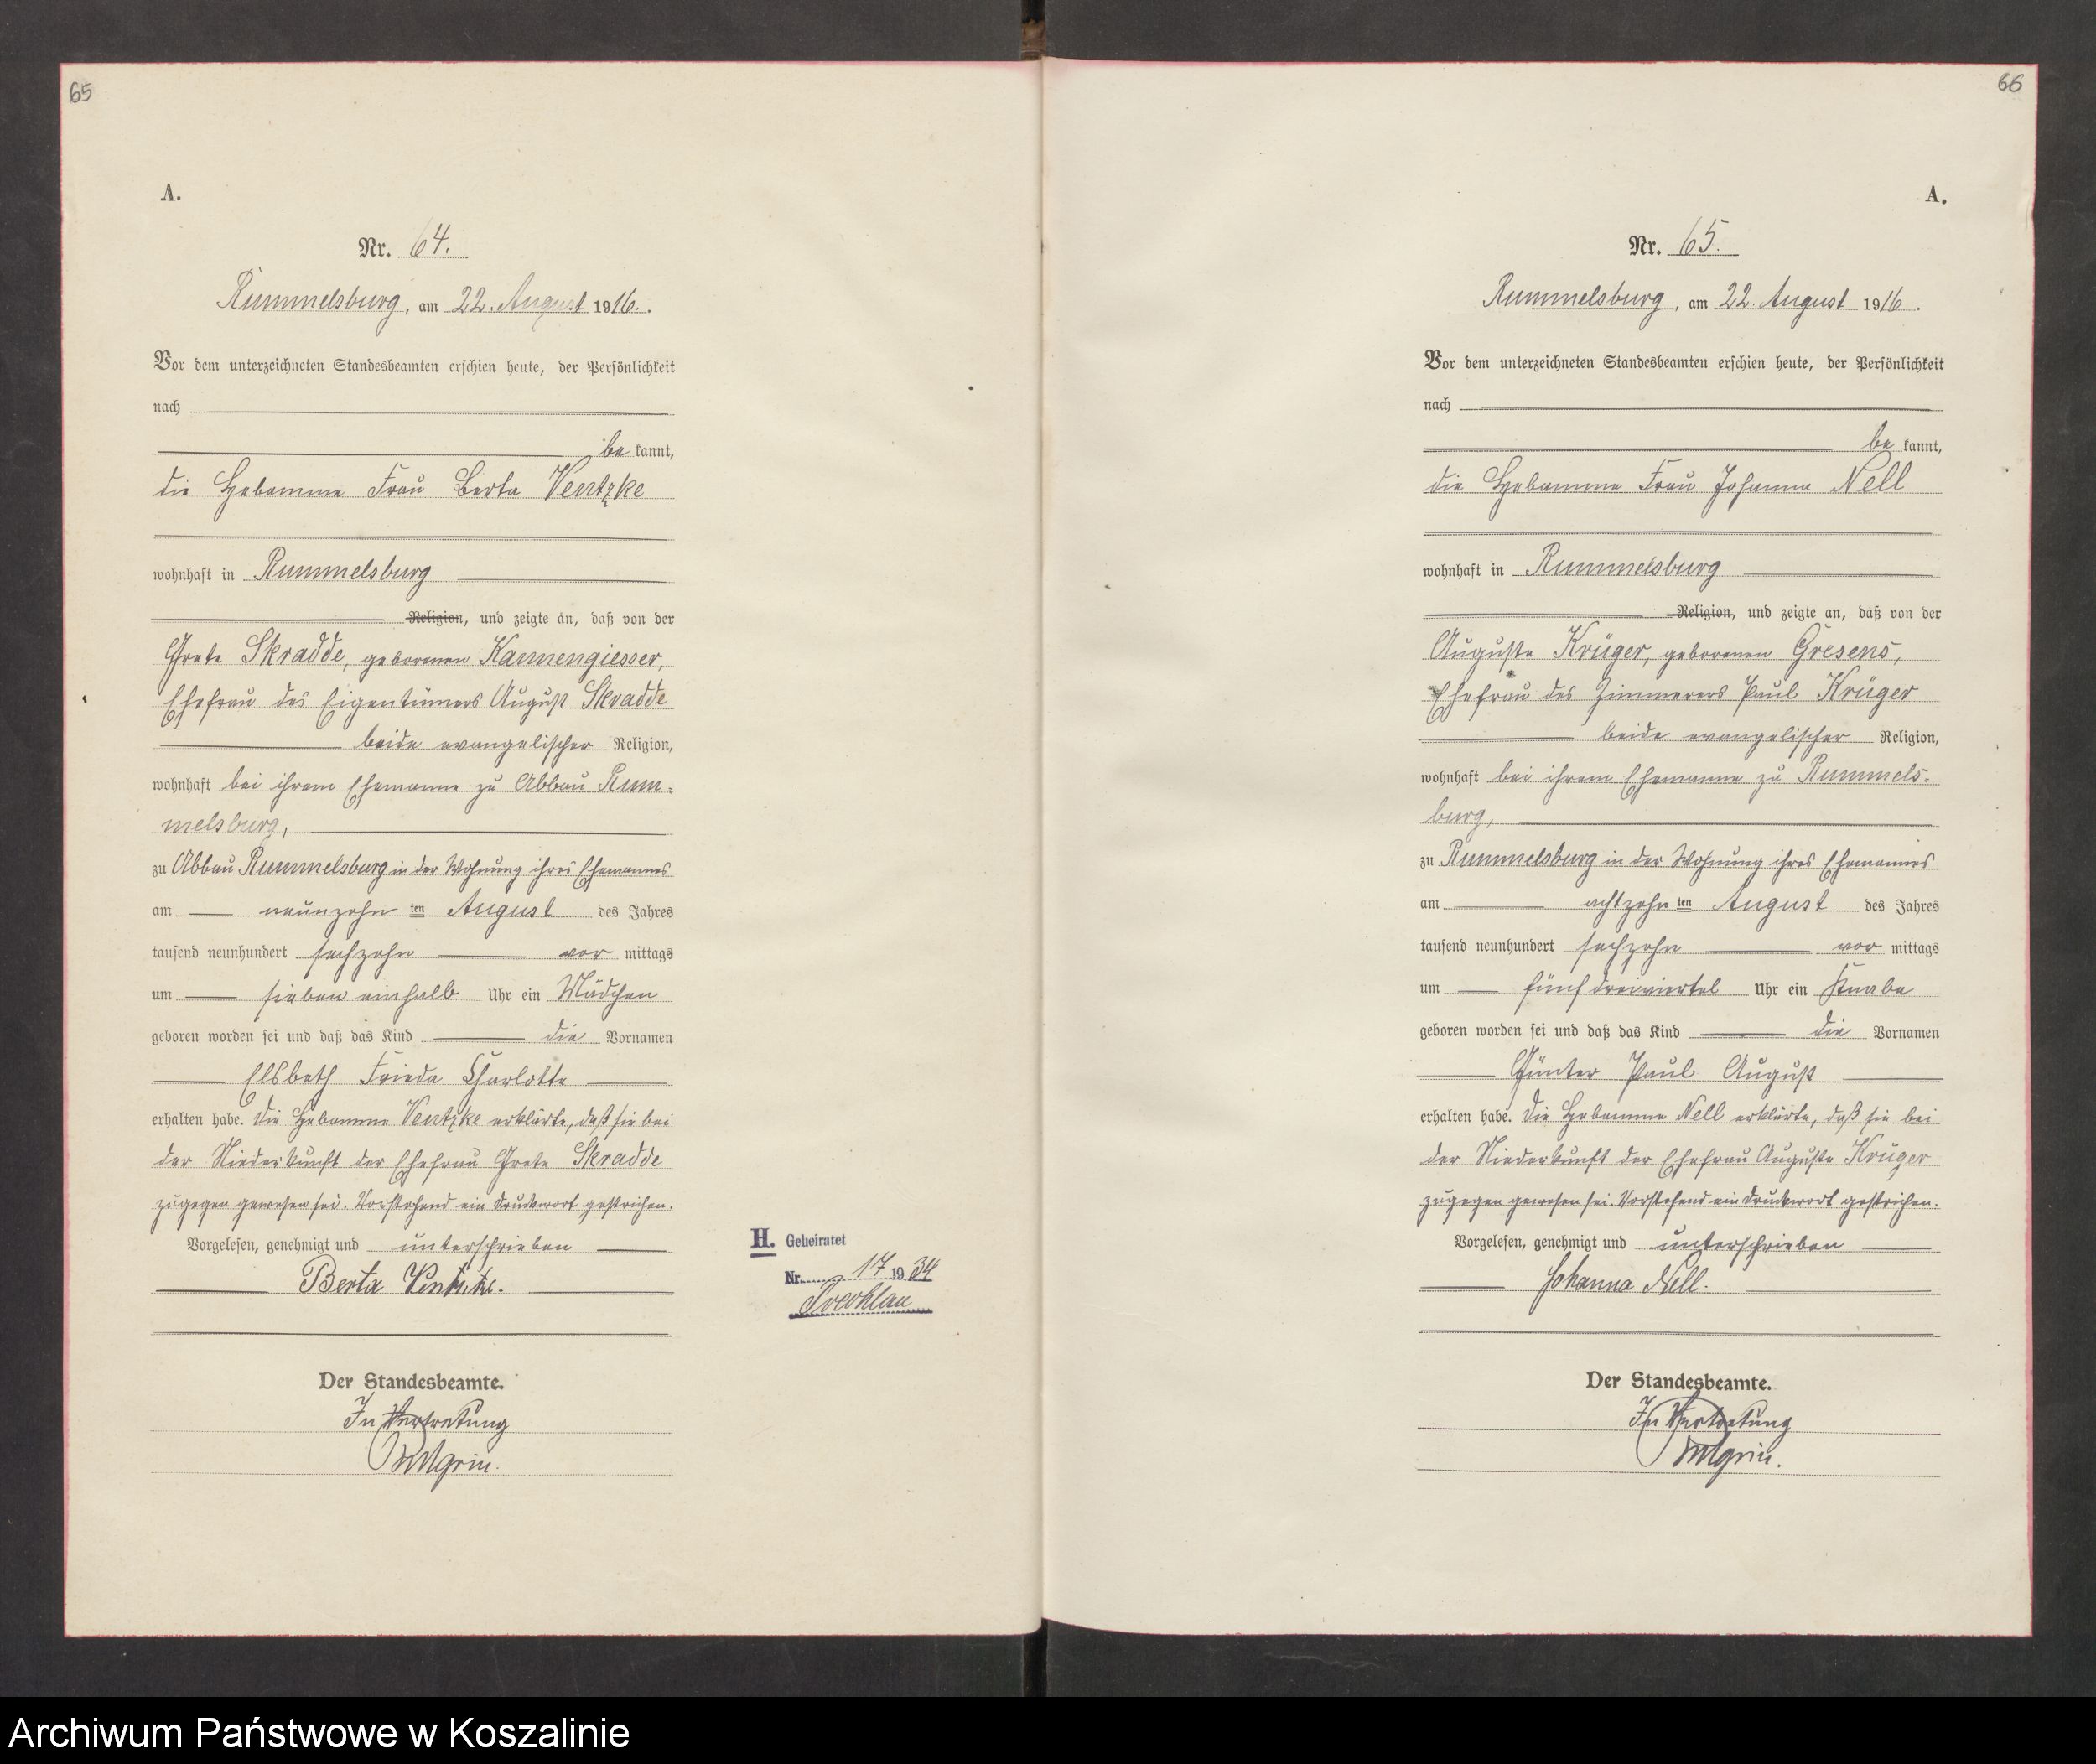 65
A.
Nr. 64.
Rummelsburg, am 22. August 1916.
Vor dem unterzeichneten Standesbeamten erschien heute, der Persönlichkeit
nach
be kannt,
die Hebamme Frau Berta Ventzke
wohnhaft in Rummelsburg
Religion, und zeigte an, daß von der
Grete Skradde, geborenen Kannengiesser,
Ehefrau des Eigentümers August Skradde
beide evangelischer Religion,
wohnhaft bei ihrem Ehemanne zu Abbau Rum-
melsburg,
zu Abbau Rummelsburg in der Wohnung ihres Ehemannes
am neunzehn ten August des Jahres
tausend neunhundert sechzehn vor mittags
um sieben einhalb Uhr ein Mädchen
geboren worden sei und daß das Kind die Vornamen
Elsbeth Frieda Charlotte
erhalten habe. Die Hebamme Ventzke erklärte, daß sie bei
der Niederkunft der Ehefrau Grete Skradde
zugegen gewesen sei. Vorstehend ein Druckwort gestrichen.
Vorgelesen, genehmigt und unterschrieben
Berta Ventzke.
Der Standesbeamte.
In Vertretung
H. Geheiratet
Nr. 17 1934
66
A.
Nr. 65.
Rummelsburg, am 22. August 1916.
Vor dem unterzeichneten Standesbeamten erschien heute, der Persönlichkeit
nach
be kannt,
die Hebamme Frau Johanna Nell
wohnhaft in Rummelsburg
Religion, und zeigte an, daß von der
Auguste Krüger, geborenen Gresens,
Ehefrau des Zimmerers Paul Krüger
beide evangelischer Religion,
wohnhaft bei ihrem Ehemanne zu Rummels-
burg,
zu Rummelsburg in der Wohnung ihres Ehemannes
am achtzehn ten August des Jahres
tausend neunhundert sechzehn vor mittags
um fünf dreiviertel Uhr ein Knabe
geboren worden sei und daß das Kind die Vornamen
Günter Paul August
erhalten habe. Die Hebamme Nell erklärte, daß sie bei
der Niederkunft der Ehefrau Auguste Krüger
zugegen gewesen sei. Vorstehend ein Druckwort gestrichen.
Vorgelesen, genehmigt und unterschrieben
Johanna Nell.
Der Standesbeamte.
In Vertretung
Archiwum Państwowe w Koszalinie